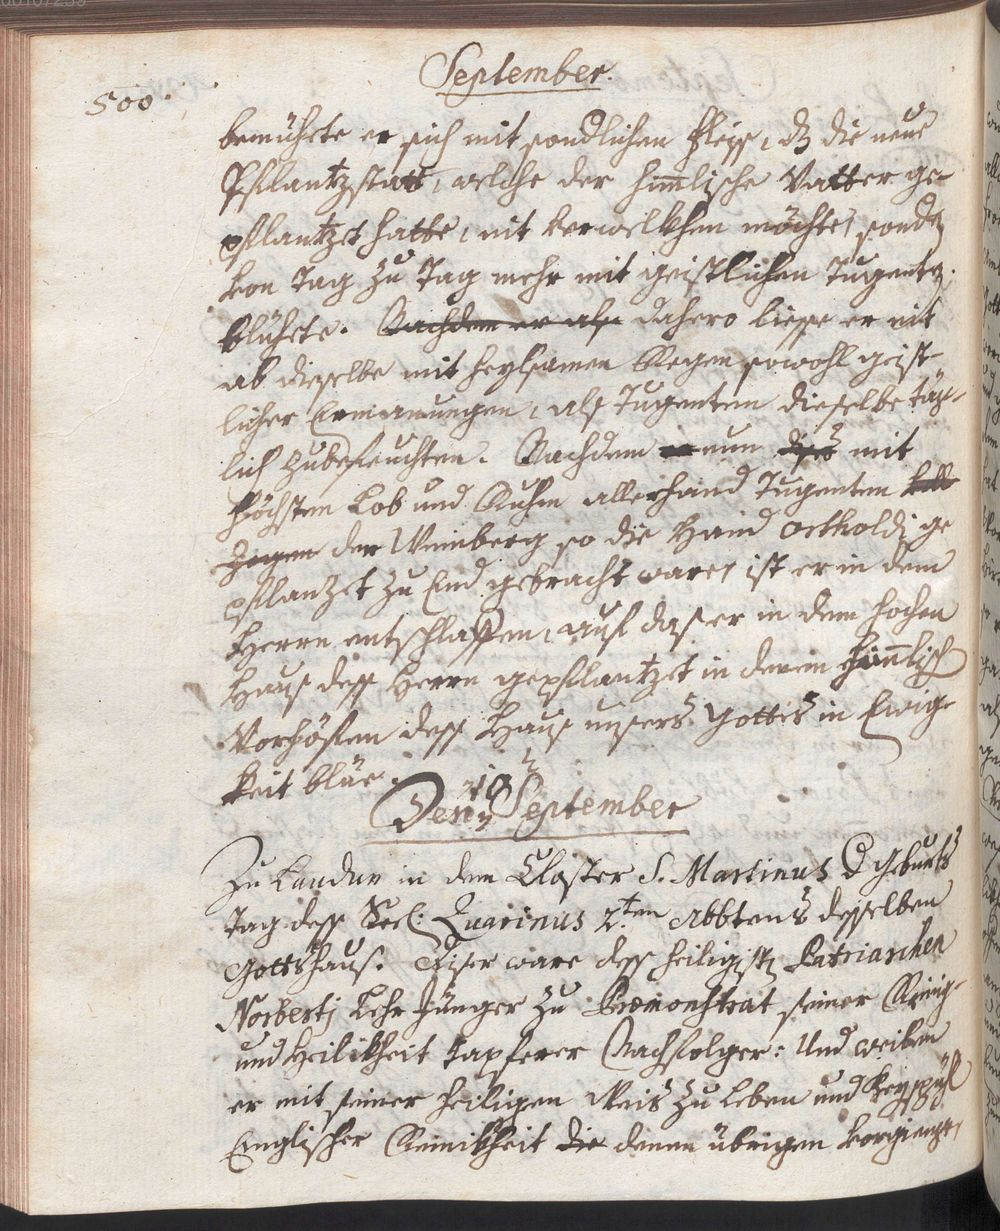 September.
500.
bemühete er sich mit sondlichen Fleiss, dz die neue
Pfllantzstatt, welche der himlische Vatter ge-
pflantzet hatte, nit verwelkhen möchte, sonder
von Tag zu Tag mehr mit geistlichen Tugenten
blühete. Nachdem er als dahero liesse er nit
ab dieselbe mit heylsamen Regen sowohl geist-
licher Ermanungen, als Tugenten dieselbe täg-
lich zubefeuchten. Nachdem er nun dises mit
höchsten Lob und Ruhm allerhand Tugenten
der Weinberg so die Hand Ortholdi ge
pflanzet zu End gebracht ware, ist er in dem
Herrn entschlaffen, auf das er in dem hochen
Haus dess Herrn gepflantzet in deren himlisch
Vorhöffen dess Haus unsers Gottes in Ewig-
keit blüe.
Den 10 September
Zu Laudun in dem Closter S. Martinus D Geburts
Tag dess Seel: Quarinus 2.ten Abbtens desselben
Gottshaus. Diser ware dess heiligisten Patriarchen
Norberti Lehr Jünger zu Præmonstrat seiner Reinig-
und Heilikheit tapferer Nachfolger: Und weilen
er mit seiner heiligen Weis zu Leben und Beyspihl
Englischer Reinikheit die denen übrigen vorgienge,